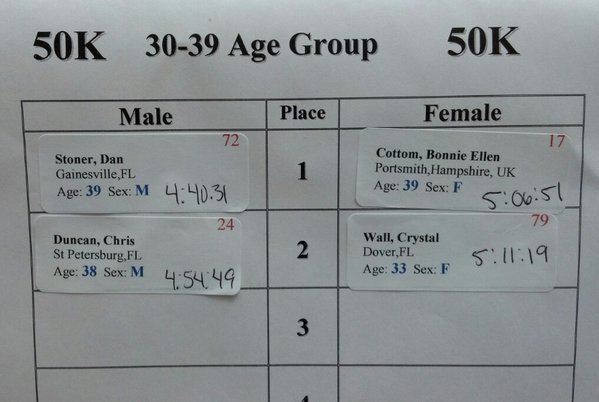 50K 30-39 Age Group 50K
Male Place Female
72
Stoner, Dan
Gainesville,FL
Age: 39 Sex: M 4:40:31
1
17
Cottom, Bonnie Ellen
Portsmith,Hampshire, UK
Age: 39 Sex: F 5:06:51
24
Duncan, Chris
St Petersburg,FL
Age: 38 Sex: M 4:54:49
2
79
Wall, Crystal
Dover,FL
Age: 33 Sex: F 5:11:19
3